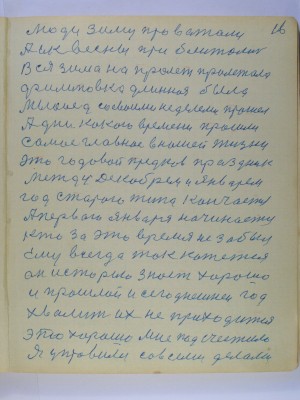 16
Люди Зиму проважали
А ик весны приближалис
Вся зима на пролет пролетала
Филиповка длинная была
Мясоед со своими неделями прошел
А дни какого времени прошли
Самое главное в нашей жизни
Это годовой предков праздник
Между Декабрем и Январем
год старого типа Канчает
А первого Января начинает
Кто за это время не забыл
Ему всегда так кажется
он историю знает хорошо
и прошлой и сегодняшней год
Хвалит их не приходится
Это хорошо мне подсчетило
Я управили совсеми делами